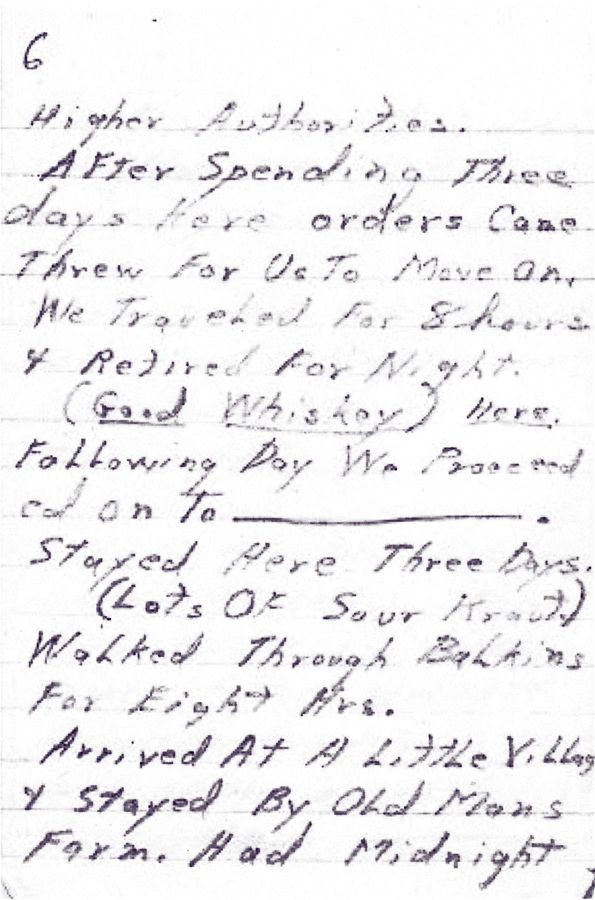 6
Higher Authorities.
After Spending Three
days here orders Came
Threw For Us To Move on.
We Traveled For 8 hours
& Retired For Night.
(Good Whiskey) Here.
Following Day We Proceed
ed on To ________.
Stayed Here Three Days.
(Lots OF Sour Kraut)
Walked Through Balkins
For Eight Hrs.
Arrived At A Little Villag
& Stayed By Old Mans
Farm. Had Midnight